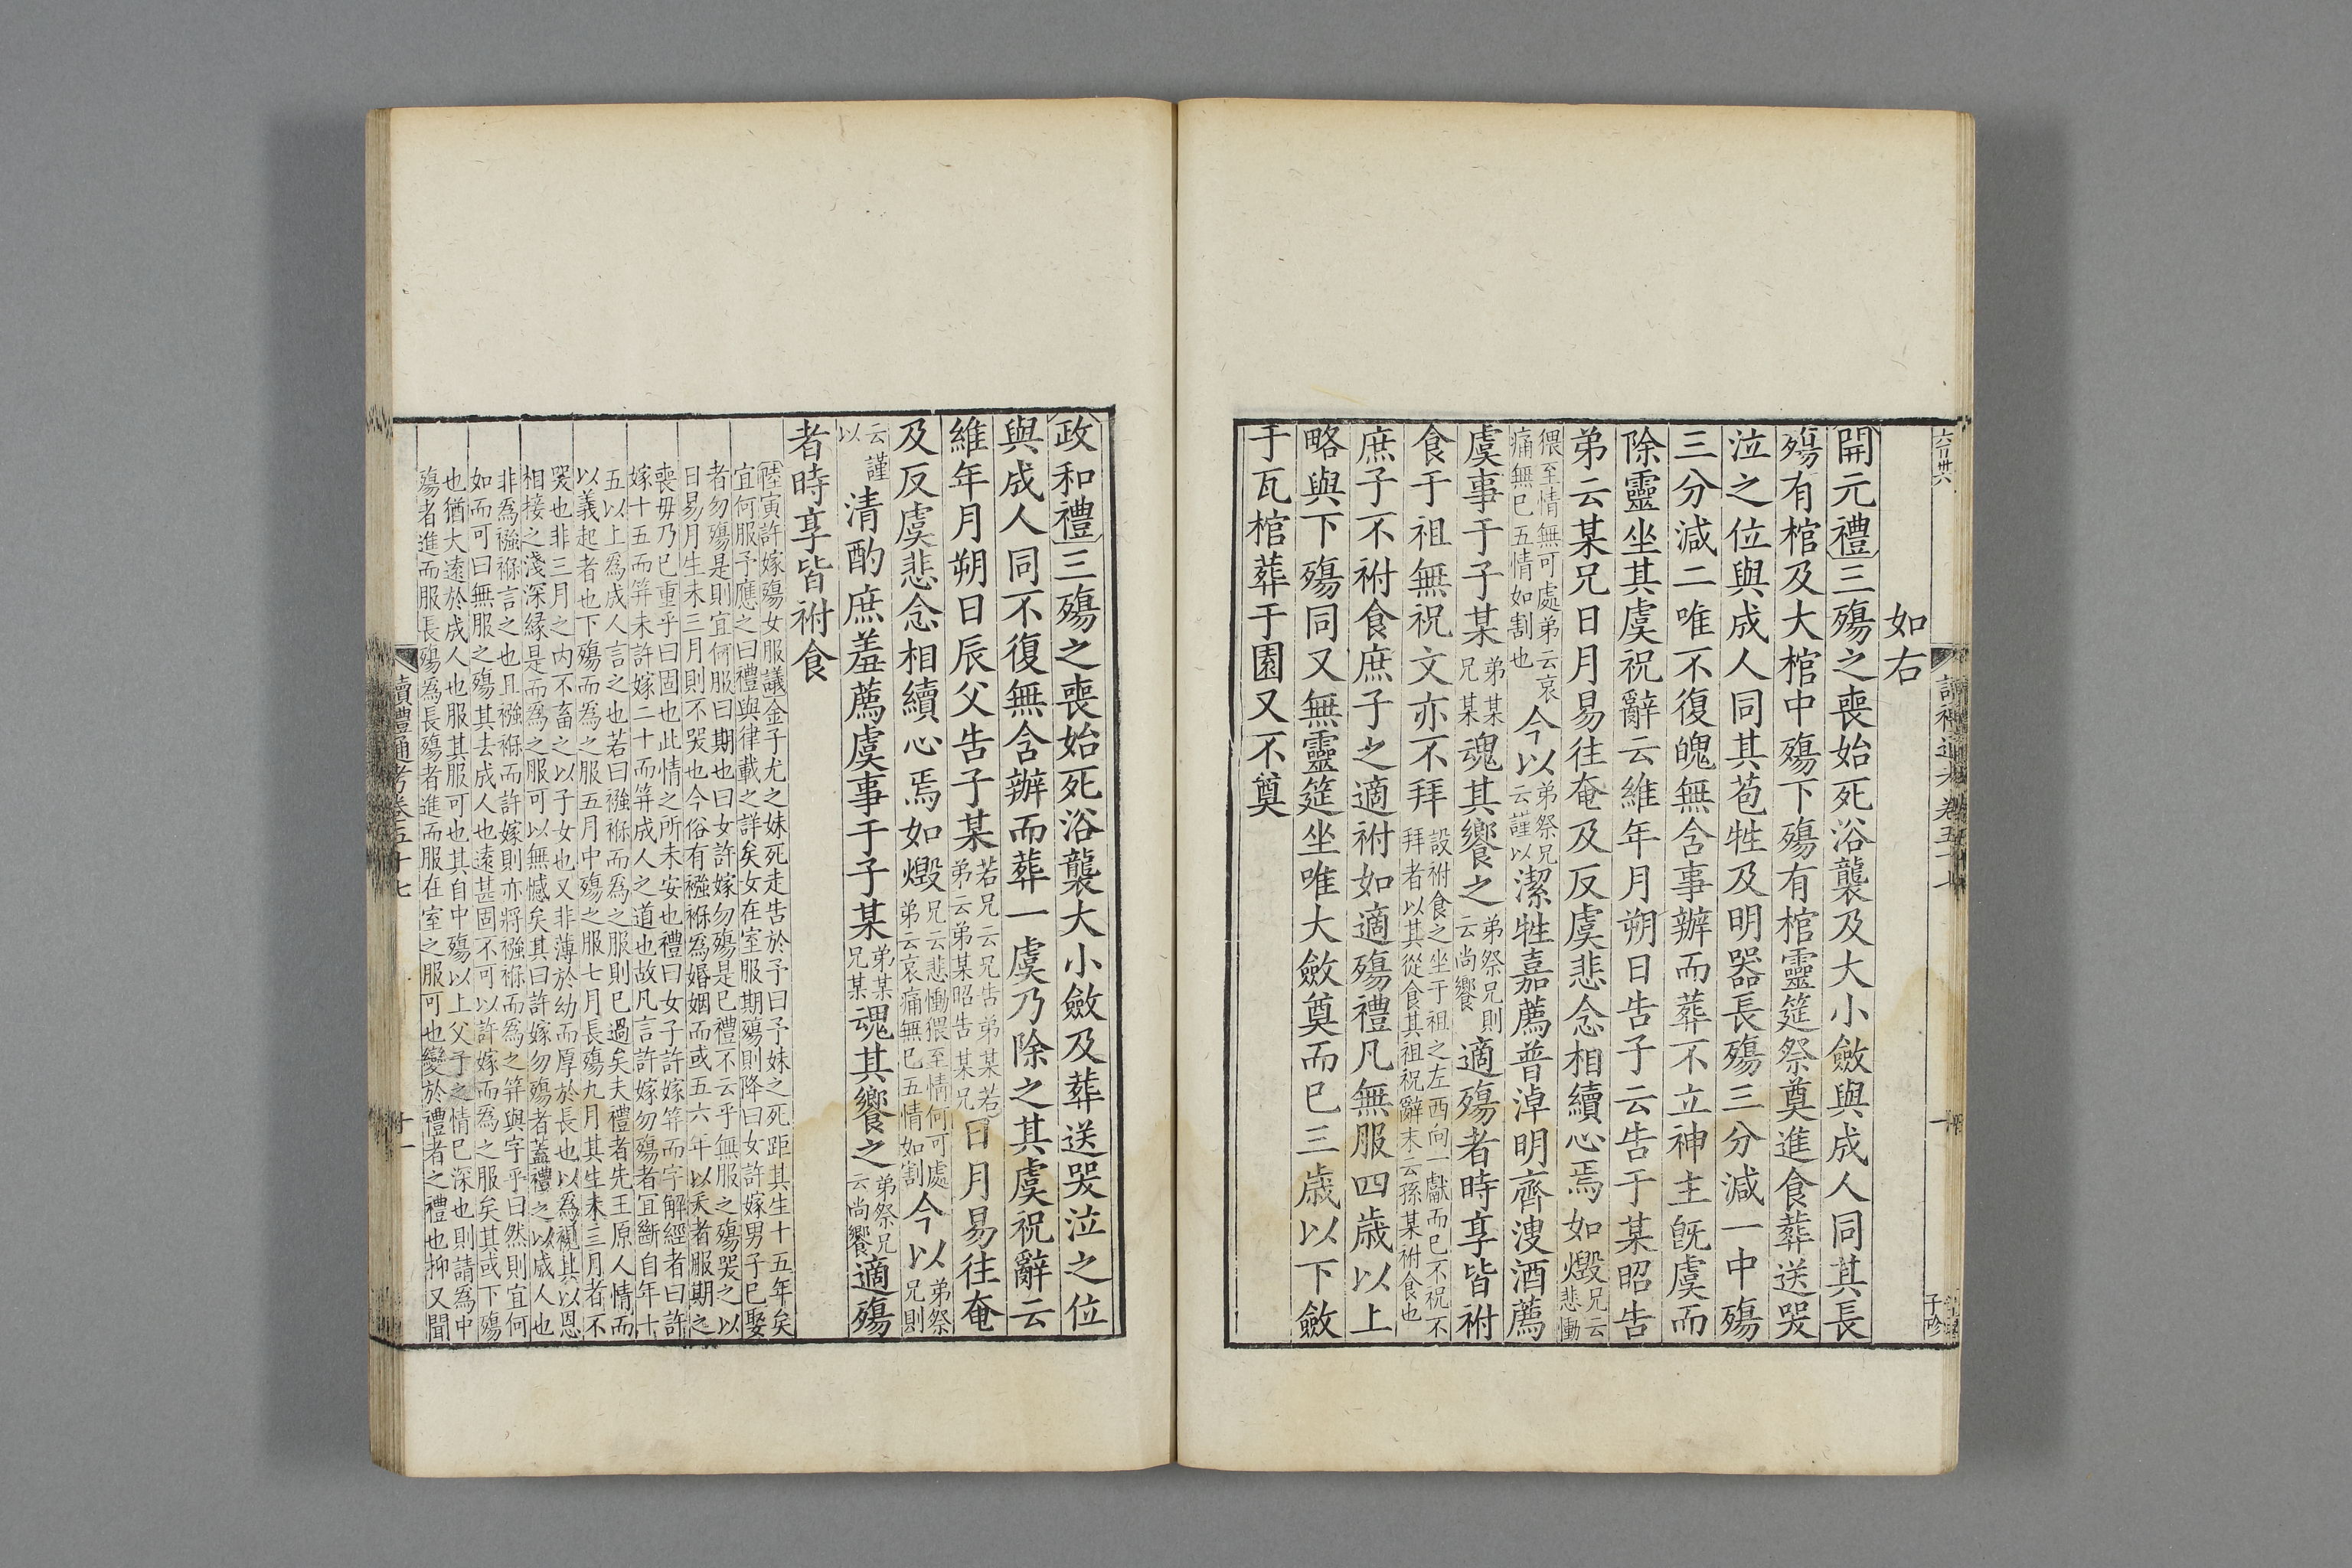 如右
開元禮三殤之喪始死浴襲及大小斂與成人同其長
殤有棺及大棺中殤下殤有棺靈筵祭奠進食葬送哭
泣之位與成人同其苞牲及明器長殤三分減一中殤
三分減二唯不復魄無含事辦而葬不立神主旣虞而
除靈坐其虞祝辭云維年月朔日告子云告于某昭告
弟云某兄日月易往奄及反虞悲念相續心焉如燬兄云悲慟
猥至情無可處弟云哀痛無已五情如割也今以弟祭兄云謹以潔牲嘉薦普淖明齊溲酒薦
虞事于子某弟某兄某魂其饗之弟祭兄則云尚饗適殤者時享皆祔
食于祖無祝文亦不拜設祔食之坐于祖之左西向一獻而已不祝不拜者以其從食其祖祝辭末云孫某祔食也
庶子不祔食庶子之適祔如適殤禮凡無服四歲以上
略與下殤同又無靈筵坐唯大斂奠而已三歲以下斂
于瓦棺葬于園又不奠
政和禮三殤之喪始死浴襲大小斂及葬送哭泣之位
與成人同不復無含辦而葬一虞乃除之其虞祝辭云
維年月朔日辰父告子某若兄云兄告弟某若弟云弟某昭告某兄日月易往奄
及反虞悲念相續心焉如燬兄云悲慟猥至情何可處弟云哀痛無已五情如割今以弟祭兄則
云謹以清酌庶羞薦虞事于子某弟某兄某魂其饗之弟祭兄云尚饗適殤
者時享皆祔食
陸寅許嫁殤女服議金子尤之妹死走告於予曰予妹之死距其生十五年矣
宜何服予應之曰禮與律載之詳矣女在室服期殤則降曰女許嫁男子已娶
者勿殤是則宜何服曰期也曰女許嫁勿殤是已禮不云乎無服之殤哭之以
日易月生未三月則不哭也今俗有襁褓爲婚姻而或五六年以來者服期之
喪毋乃已重乎曰固也此情之所未安也禮曰女子許嫁笄而字解經者曰許
嫁十五而笄未許嫁二十而笄成人之道也故凡言許嫁勿殤者宜斷自年十
五以上爲成人言之也若曰襁褓而爲之服則已過矣夫禮者先王原人情而
以義起者也下殤而爲之服五月中殤之服七月長殤九月其生未三月者不
哭也非三月之內不畜之以子女也又非薄於幼而厚於長也以爲視其以恩
相接之淺深緣是而爲之服可以無憾矣其曰許嫁勿殤者蓋禮之以成人也
非爲襁褓言之也且襁褓而許嫁則亦將襁褓而爲之笄與字乎曰然則宜何
如而可曰無服之殤其去成人也遠甚固不可以許嫁而爲之服矣其或下殤
也猶大遠於成人也服其服可也其自中殤以上父子之情已深也則請爲中
殤者進而服長殤爲長殤者進而服在室之服可也變於禮者之禮也抑又聞
讀禮通考卷五十七
十一